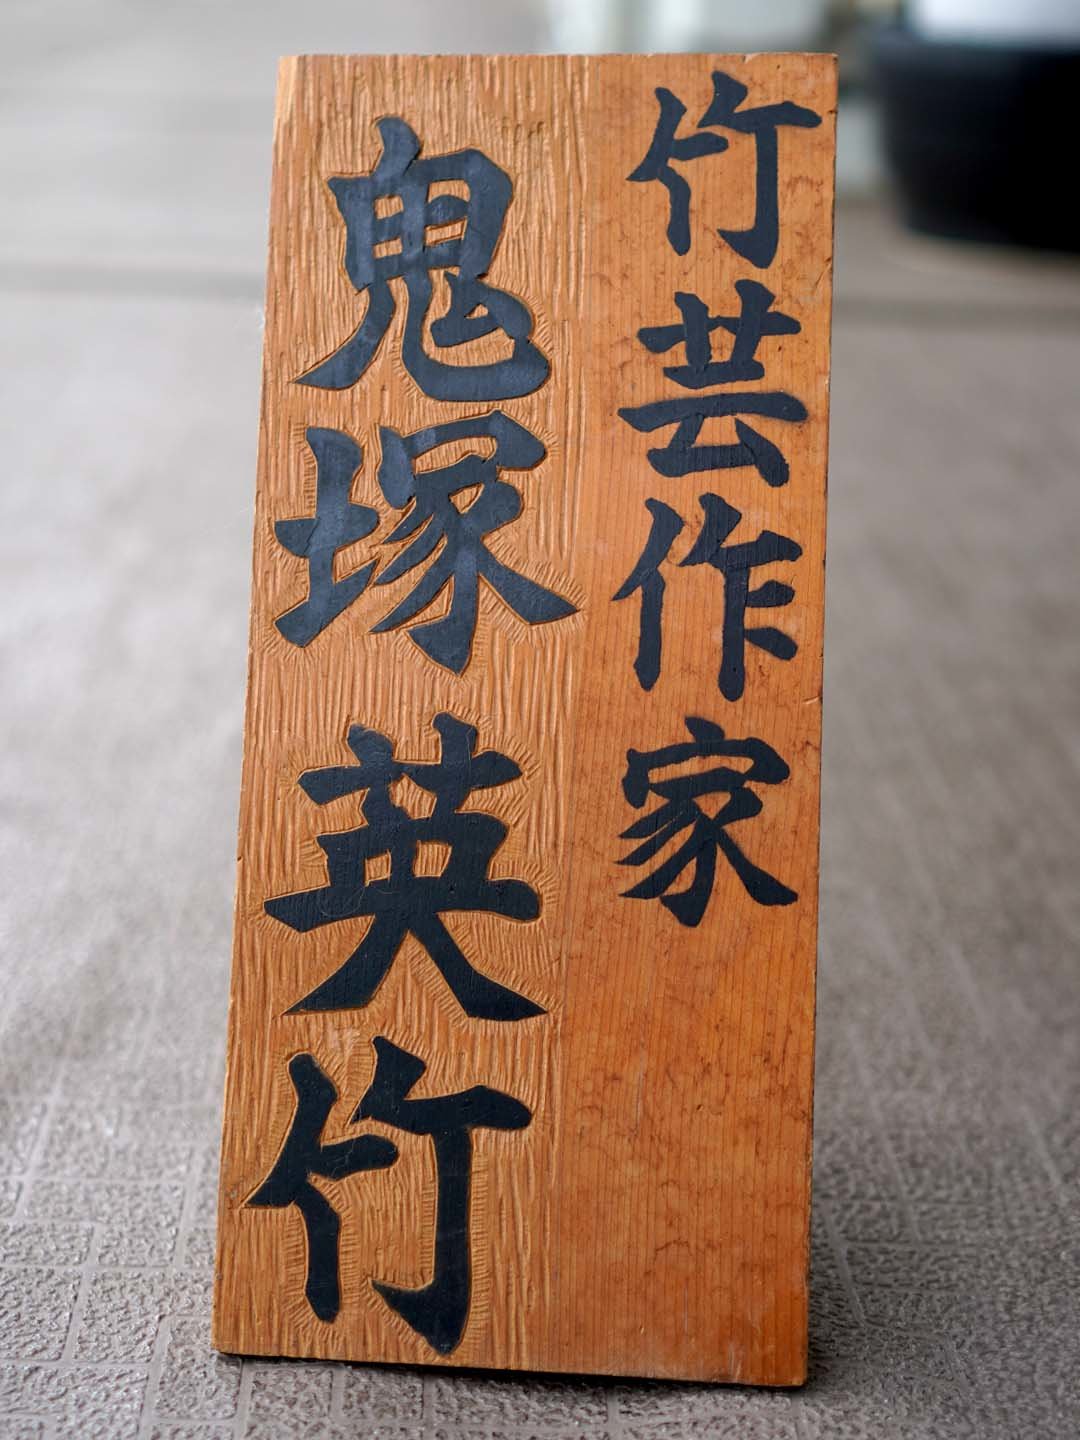 竹芸作家
鬼塚英竹